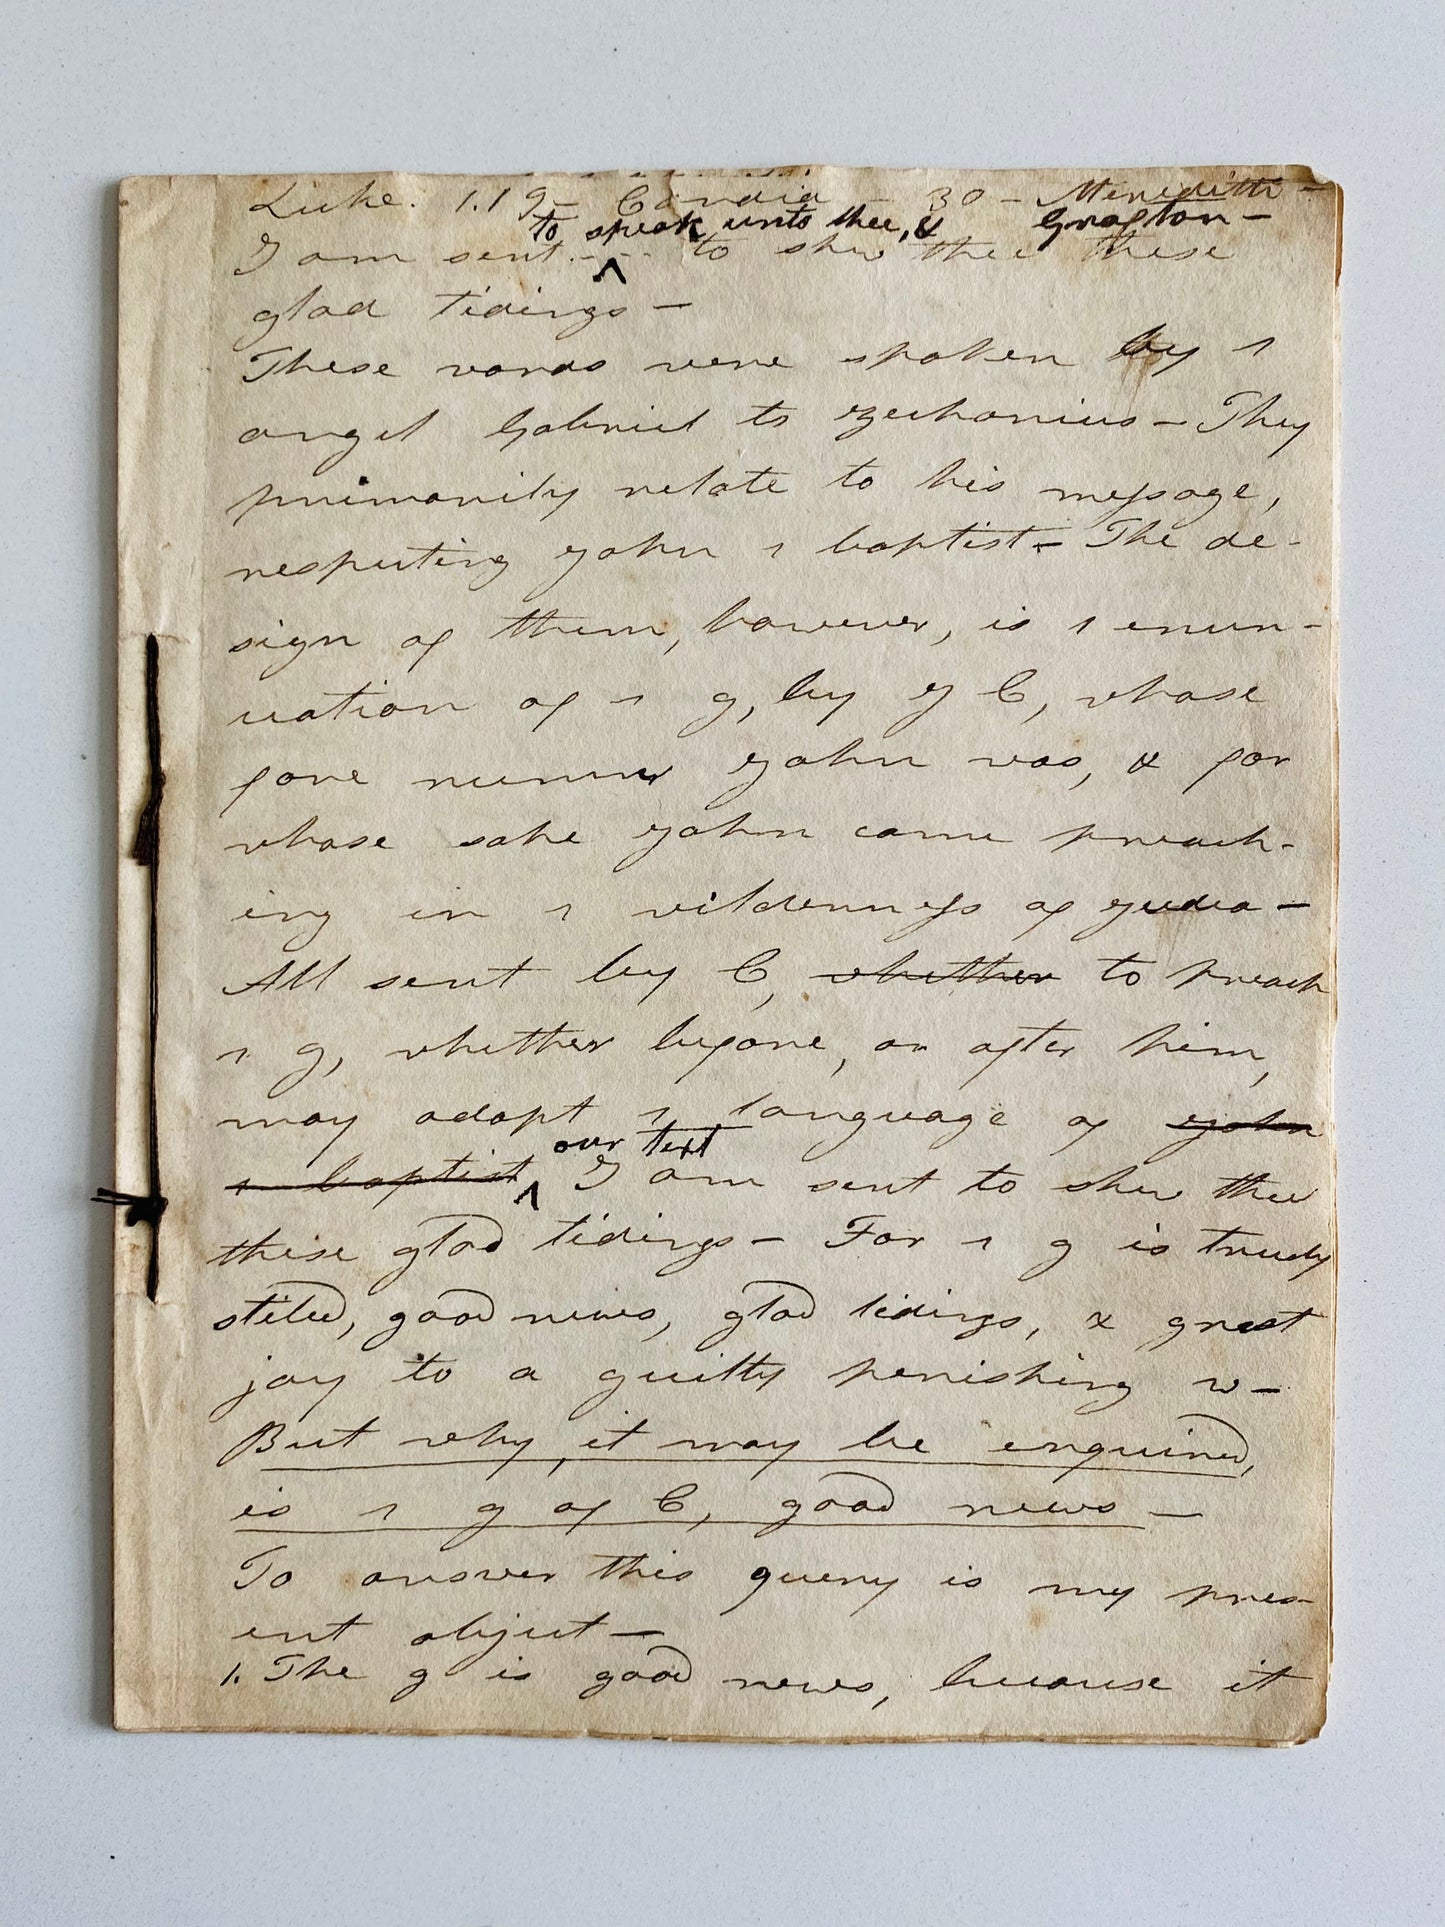 Luke. 1.19 - Candia - 30 - Meredith -
to speak unto thee, & Grafton -
I am sent ---- to shew thee these
glad tidings -
These words were spoken by 1
angel Gabriel to Zecharius - They
primarily relate to his message,
respecting John 1 baptist - The de-
sign of them, however, is 1 enun-
ciation of 1 g, by J C, whose
fore runner John was, & for
whose sake John came preach-
ing in 1 wilderness of Judea -
All sent by C, whether to preach
1 g, whether before, or after him,
may adopt 1 language of John
our text
1 baptist ^ I am sent to shew thee
these glad tidings - For 1 g is truely
stiled, good news, glad tidings, & great
joy to a guilty perishing w -
But why, it may be enquired,
is 1 g of C, good news -
To answer this query is my pres-
ent object -
1. The g is good news, because it